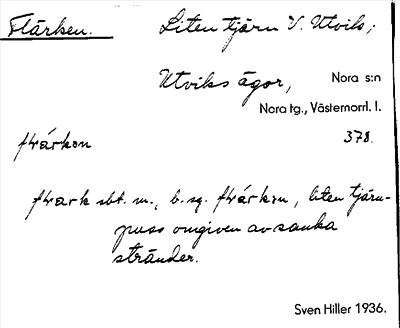 Flärken. Liten tjärn V. Utvik;
Utviks ägor, Nora s:n
Nora tg., Västernorrl. l.
378.
sbt. m., b. sg. liten tjärn-
puss omgiven av sanka
stränder.
Sven Hiller 1936.